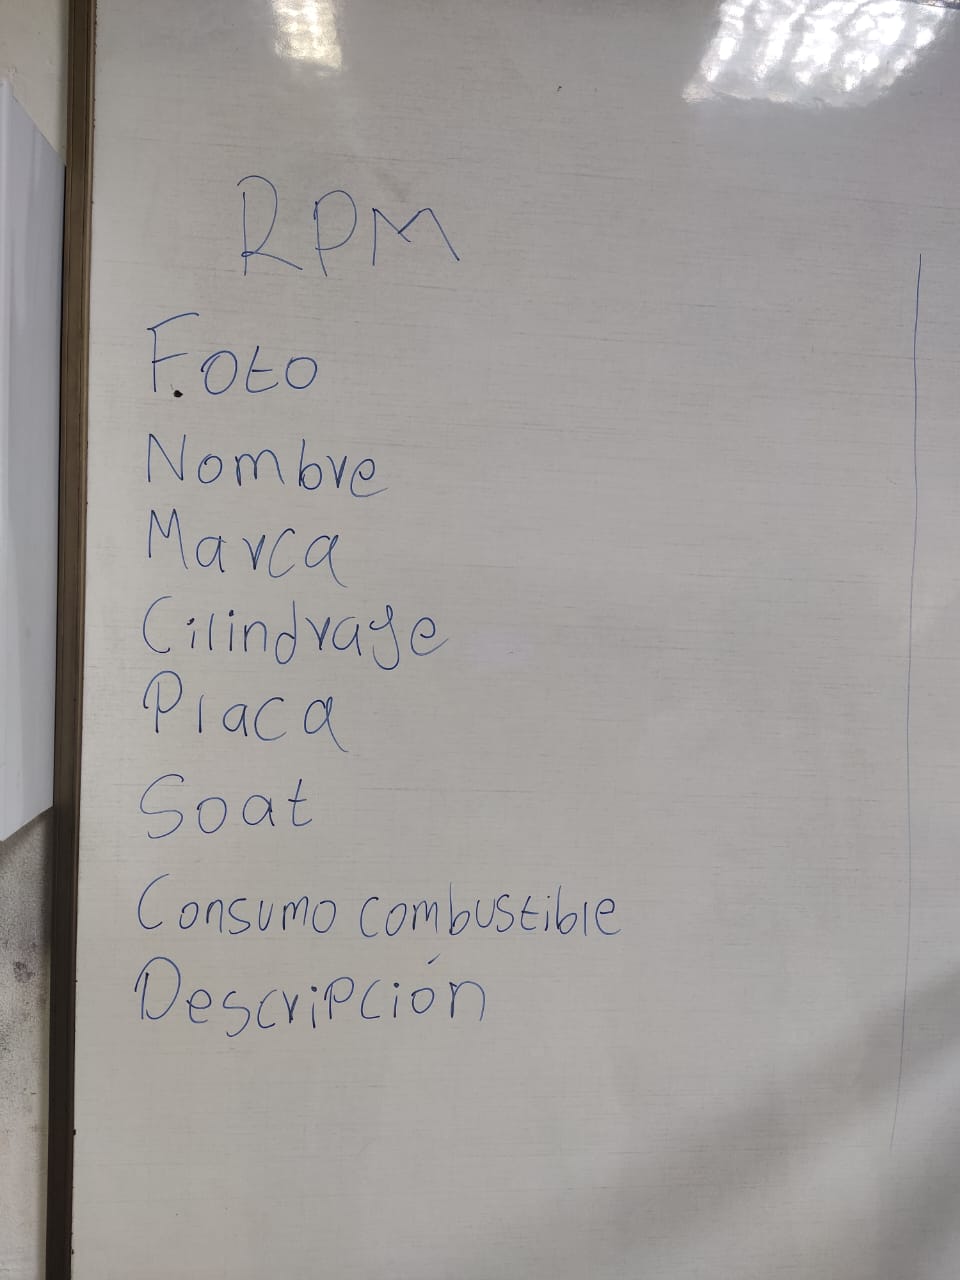 RPM
Foto
Nombre
Marca
Cilindraje
Placa
Soat
Consumo combustible
Descripción